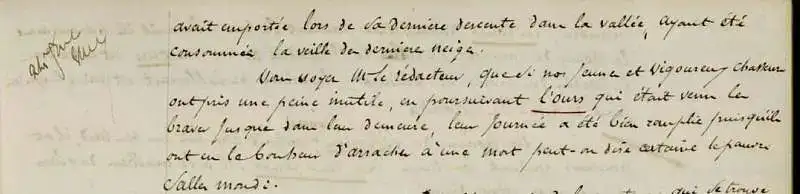 avait emportée lors de sa derniere descente dans la vallée, ayant été
consommée la veille du derniere neige.
Vous voyez Mr le rédacteur, que si nos jeunes et vigoureux chasseurs
ont pris une peine inutile, en poursuivant l'ours qui était venu les
braver jusque dans leur demeure, leur journée a été bien remplie puisqu'ils
ont eu le bonheur d'arracher à une mort peut-on dire certaine le pauvre
Salles monde.
qui se trouve